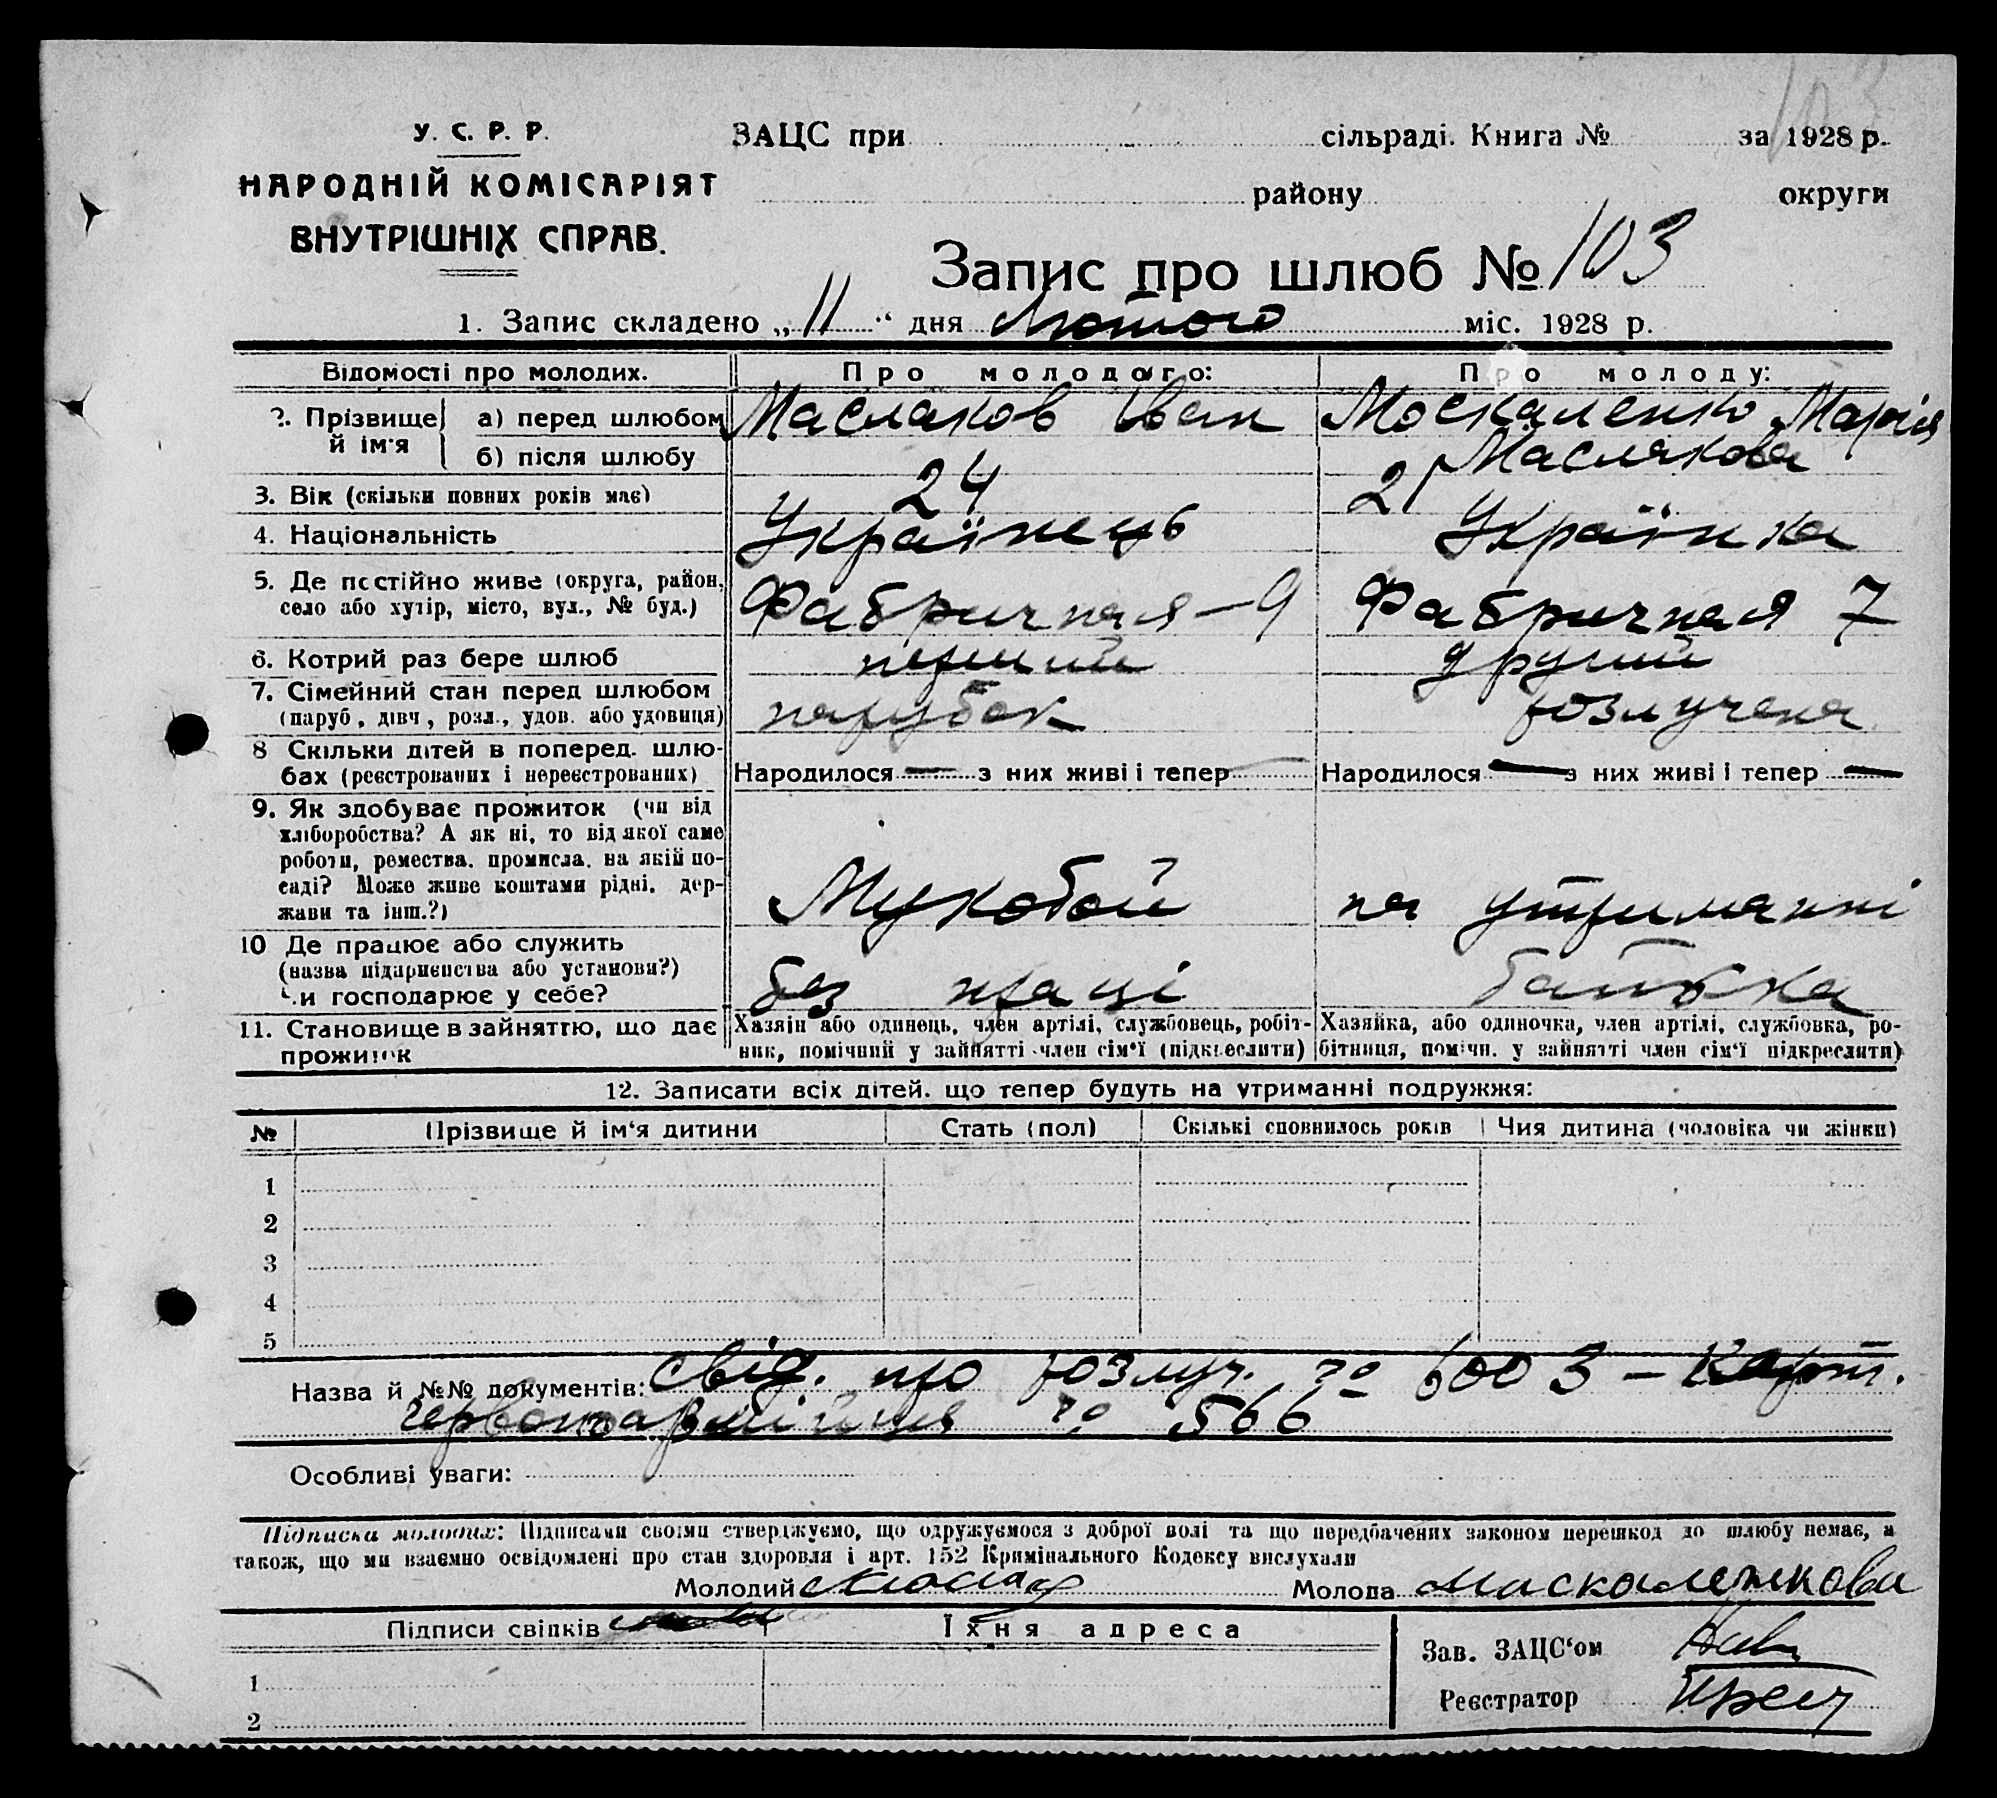 103
У. С. Р. Р.
НАРОДНІЙ КОМІСАРІЯТ
ВНУТРІШНІХ СПРАВ.
ЗАЦС при сільраді. Книга № за 1928 р.
району округи
Запис про шлюб № 103
1. Запис складено „ 11 “ дня Лютого міс. 1928 р.
Відомості про молодих. Про молодого: Про молоду:
2. Прізвище й ім'я а) перед шлюбом Маслаков Іван Москаленко Марія
б) після шлюбу Маслякова
3. Вік (скільки повних років має) 24 21
4. Національність Українець Українка
5. Де постійно живе (округа, район, Фабричная – 9 Фабричная 7
село або хутір, місто, вул., № буд.)
6. Котрий раз бере шлюб перший другий
7. Сімейний стан перед шлюбом парубок розлучена
(паруб, дівч, розл., удов. або удовиця)
8 Скільки дітей в поперед. шлю-
бах (реєстрованих і нереєстрованих) Народилося — з них живі і тепер — Народилося — з них живі і тепер —
9. Як здобуває прожиток (чи від
хліборобства? А як ні, то від якої саме
роботи, ремества. промисла. на якій по-
саді? Може живе коштами рідні. дер-
жави та інш.?) Мукобой на утриманні
10 Де працює або служить
(назва підприємства або установи?)
Чи господарює у себе? без праці батька
11. Становище в зайняттю, що дає прожиток
Хазяїн або одинець, член артілі, службовець, робіт-
ник, помічний у зайнятті член сім'ї (підкреслити)
Хазяйка, або одиночка, член артілі, службовка, ро-
бітниця, помічн. у зайнятті член сім'ї підкреслити)
12. Записати всіх дітей. що тепер будуть на утриманні подружжя:
№ Прізвище й ім'я дитини Стать (пол) Скількі сповнилось років Чия дитина (чоловіка чи жінки)
1
2
3
4
5
Назва й №№ документів: Свід. про розлуч. № 6003 – карт.
Червоноармійця № 566
Особливі уваги:
Підписка молодих: Підписами своїми стверджуємо, що одружуємося з доброї волі та що передбачених законом перешкод до шлюбу немає, а
також, що ми взаємно освідомлені про стан здоровля і арт. 152 Кримінального Кодексу вислухали
Молодий Молода Маскаленкова
Підписи свідків Їхня адреса
Зав. ЗАЦС'ом
1
Реєстратор
2